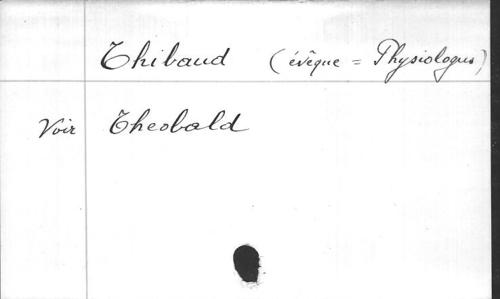 Thibaud (évêque = Physiologus)
Voir Theobald